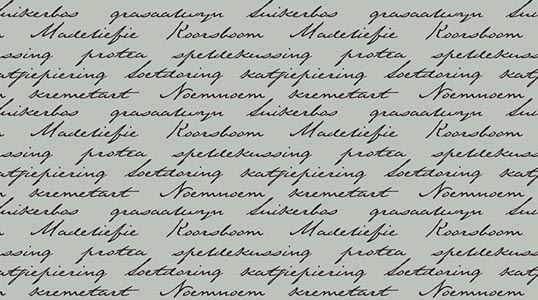 Suikerbos grasaalwyn Suikerbos grasaalwyn Sui
Madeliefie Koorsboom Madeliefie Koorsboom
ssing protea speldekussing protea speldekuss
katjiepiering Soetdoring katjiepiering Soetdoring katj
kremetart Noemnoem kremetart Noemnoem
Suikerbos grasaalwyn Suikerbos grasaalwyn Sui
Madeliefie Koorsboom Madeliefie Koorsboom
ssing protea speldekussing protea speldekuss
atjiepiering Soetdoring katjiepiering Soetdoring katj
kremetart Noemnoem kremetart Noemnoem
Suikerbos grasaalwyn Suikerbos grasaalwyn Sui
Madeliefie Koorsboom Madeliefie Koorsboom
ssing protea speldekussing protea speldekuss
atjiepiering Soetdoring katjiepiering Soetdoring katj
kremetart Noemnoem kremetart Noemnoem